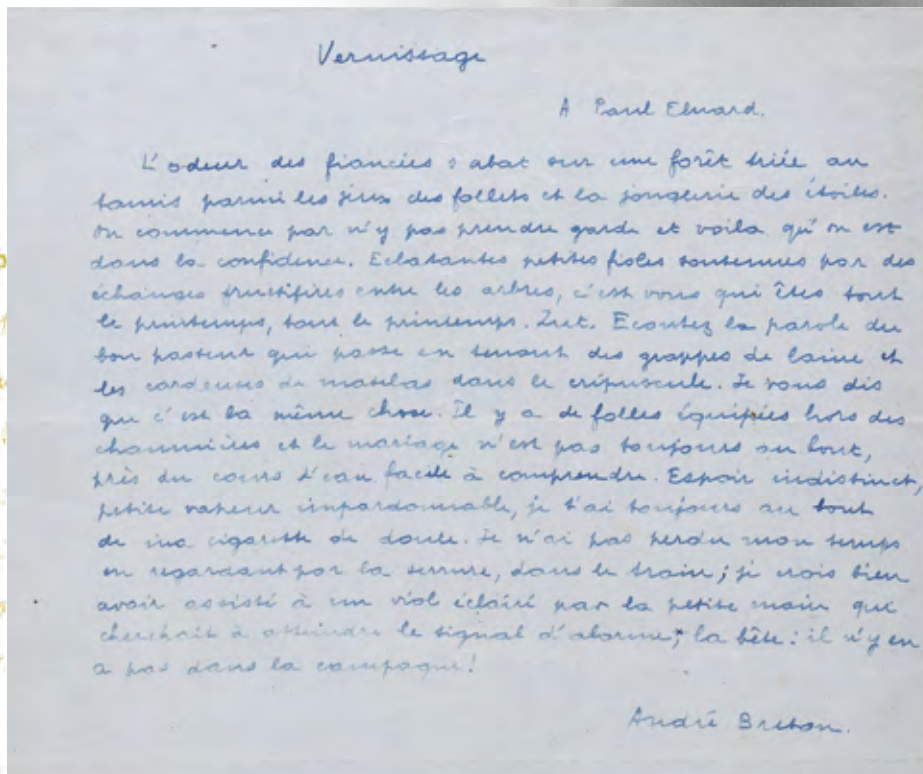 Vernissage
A Paul Eluard.
L'odeur des fiancées s'abat sur une forêt triée au
tamis parmi les jeux des follets et la jonglerie des étoiles.
On commence par n'y pas prendre garde et voila qu'on est
dans la confidence. Eclatantes petites fioles soutenues par des
échanges fructifères entre les arbres, c'est vous qui êtes tout
le printemps, tout le printemps. Zut. Ecoutez la parole du
bon pasteur qui passe en tenant des grappes de laine et
les cardeuses de matelas dans le crépuscule. Je vous dis
que c'est la même chose. Il y a de folles équipées hors des
chaumières et le mariage n'est pas toujours au bout,
près du cours d'eau facile à comprendre. Espoir indistinct,
petite vapeur impardonnable, je t'ai toujours au bout
de ma cigarette de doute. Je n'ai pas perdu mon temps
en regardant par la serrure, dans le train; je crois bien
avoir assisté à un viol éclairé par la petite main qui
cherchait à atteindre le signal d'alarme; la bête: il n'y en
a pas dans la campagne!
André Breton.